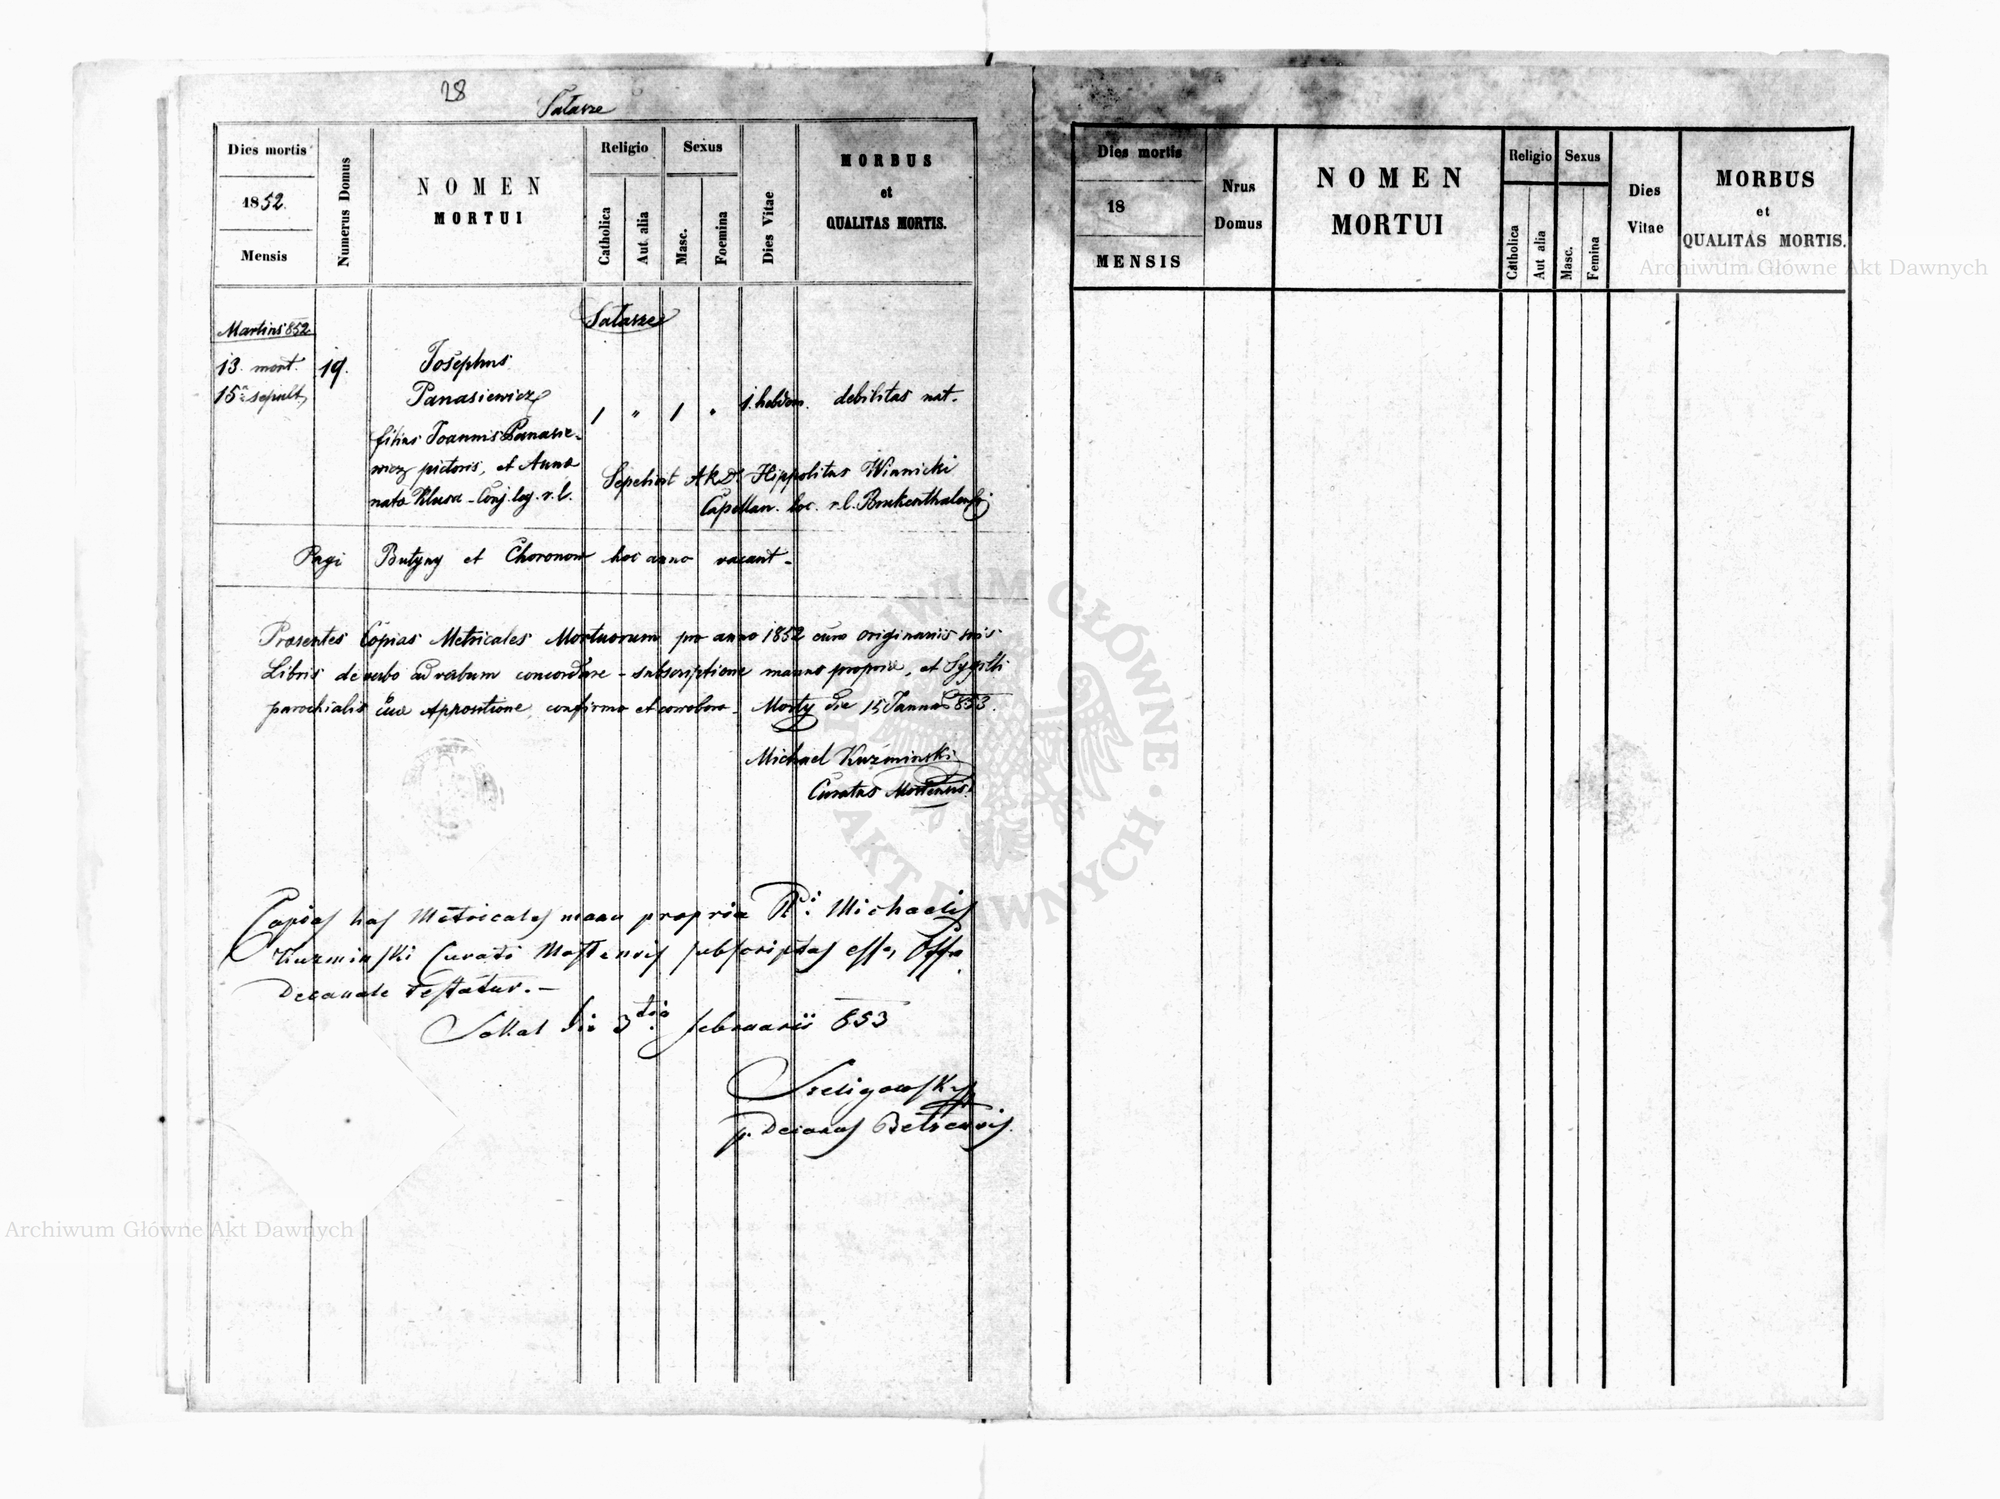 28
Sałasze
Dies mortis
1852.
Mensis
Numerus Domus
NOMEN
MORTUI
Religio
Catholica
Aut. alia
Sexus
Masc.
Foemina
Dies Vitae
MORBUS
et
QUALITAS MORTIS.
Martius 852
Sałasze
13. mort. 19. Josephus
15. sepult. Panasiewicz 1 " 1 " 1. hebdom. debilitas nat.
filius Joannis Panasie-
wicz pictoris, et Anna
nata Klusa - Conj. leg. r. l.
Sepelivit A.R.D. Hippolitus Winnicki
Capellan. loc. r. l. Brukenthalensis
Pagi Butyny et Choronow hoc anno vacant.
Praesentes Copias Metricales Mortuorum pro anno 1852 cum originariis suis
Libris de verbo ad verbum concordare - subscriptione manus propriae, et Sygilli
parochialis Appositione, confirmo et corroboro - Mosty die 15 Januar 853.
Michael Kuzminski
Curatus Mostensis
Copias has Metricales manu propria Michaelis
Kuzminski Curati Mostensis subscriptas esse, Offm
Decanale testatur.-
Sokal die 3tia februarii 853
Szeligowski
Decanus Belzensis.
Dies mortis
18
MENSIS
Nrus
Domus
NOMEN
MORTUI
Religio
Catholica
Aut alia
Sexus
Masc.
Femina
Dies
Vitae
MORBUS
et
QUALITAS MORTIS.
Archiwum Główne Akt Dawnych
ARCHIWUM GŁÓWNE AKT DAWNYCH
Archiwum Główne Akt Dawnych